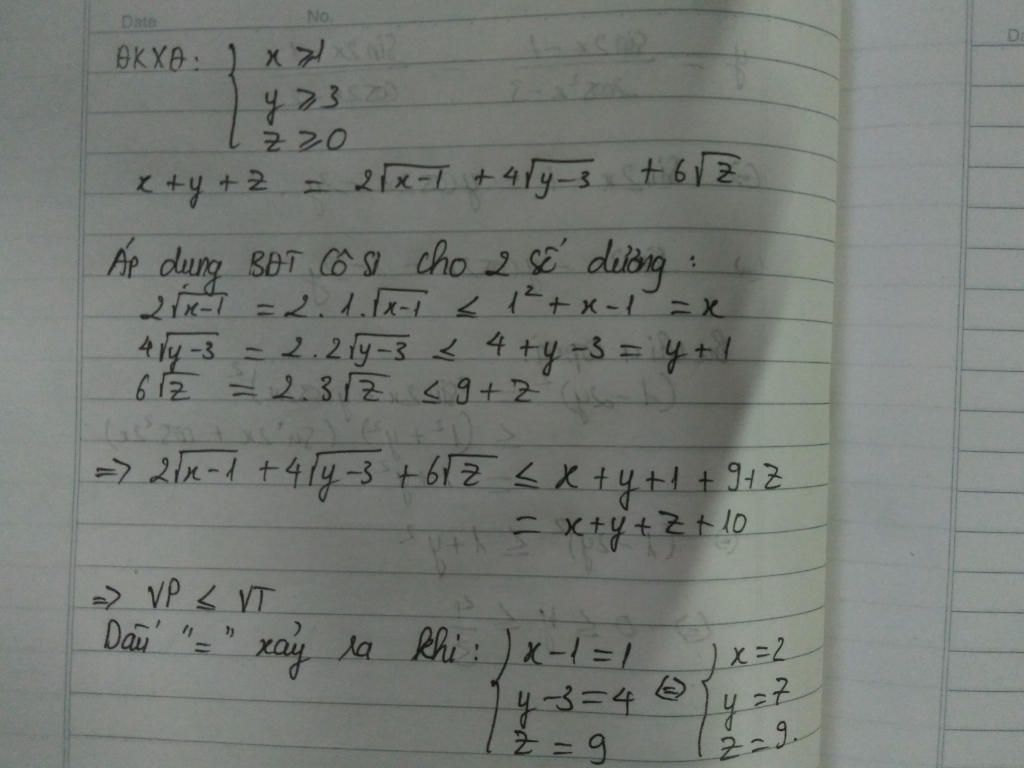 Date No.
ĐKXĐ: { x ≥ 1
y ≥ 3
z ≥ 0
x + y + z = 2√(x-1) + 4√(y-3) + 6√z
Áp dụng BĐT Cô Si cho 2 số dương:
2√(x-1) = 2.1.√(x-1) ≤ 1² + x - 1 = x
4√(y-3) = 2.2√(y-3) ≤ 4 + y - 3 = y + 1
6√z = 2.3√z ≤ 9 + z
=> 2√(x-1) + 4√(y-3) + 6√z ≤ x + y + 1 + 9 + z
= x + y + z + 10
=> VP ≤ VT
Dấu "=" xảy ra khi: { x - 1 = 1 { x = 2
y - 3 = 4 <=> y = 7
z = 9 z = 9.